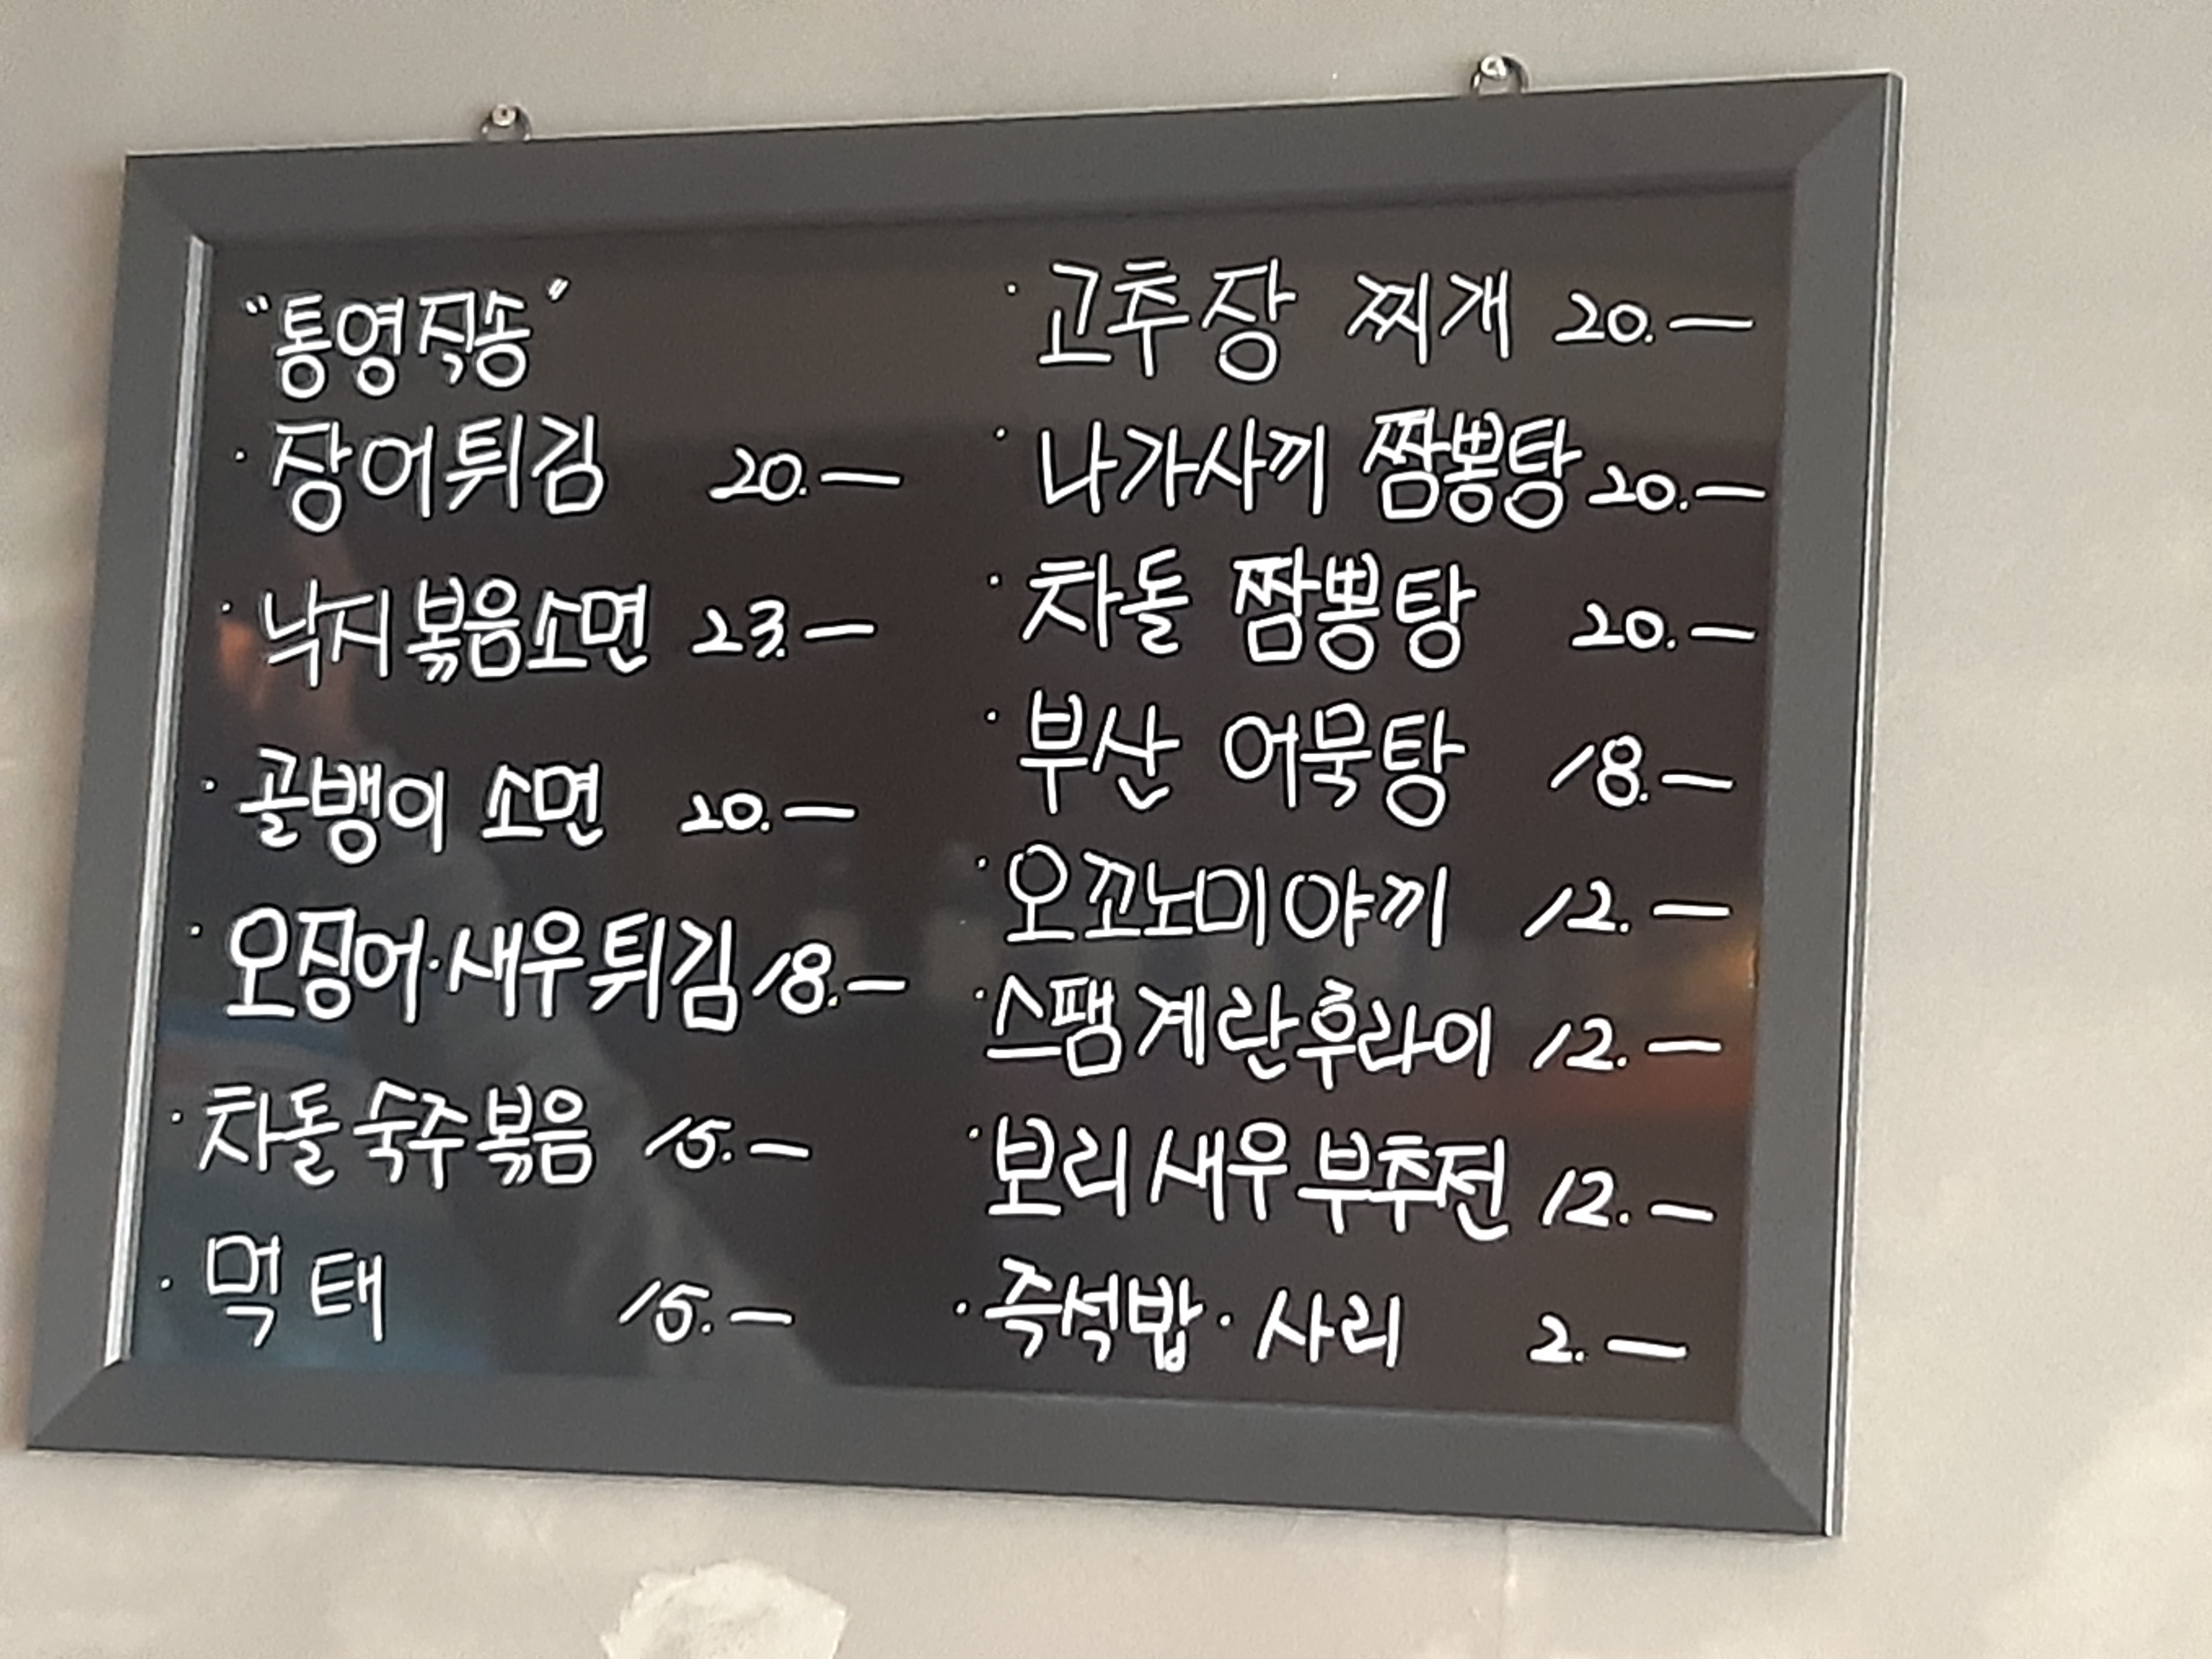 "통영직송"
· 장어튀김 20.—
· 낙지볶음소면 23.—
· 골뱅이 소면 20.—
· 오징어·새우튀김 18.—
· 차돌숙주볶음 15.—
· 먹태 15.—
· 고추장 찌개 20.—
· 나가사끼 짬뽕탕 20.—
· 차돌 짬뽕탕 20.—
· 부산 어묵탕 18.—
· 오꼬노미야끼 12.—
· 스팸계란후라이 12.—
· 보리새우부추전 12.—
· 즉석밥·사리 2.—